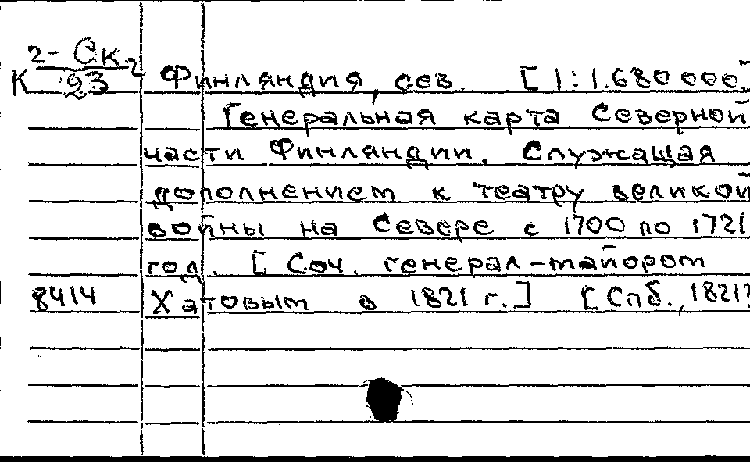 К 2-Ск2/93
Финляндия, сев. [1:1.680000]
Генеральная карта Северной
части Финляндии. Служащая
дополнением к театру великой
войны на Севере с 1700 по 1721
год. [Соч. генерал-майором
8414 Хатовым в 1821 г.] [Спб., 1821?